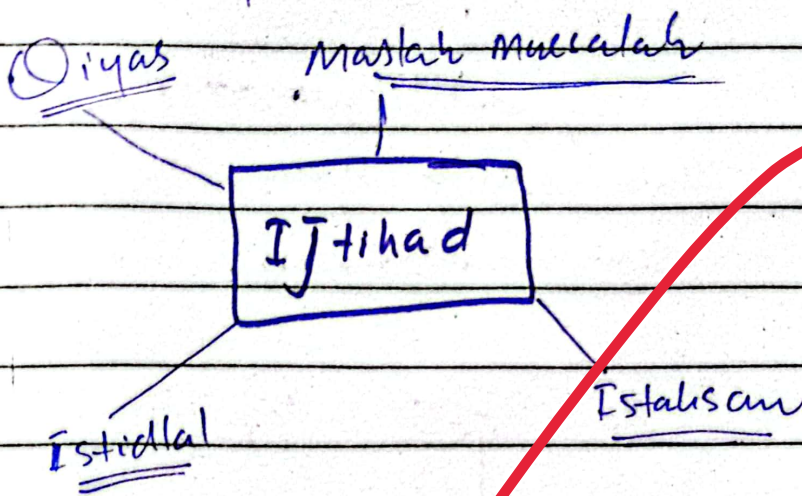 Qiyas
Maslah Mursalah
Ijtihad
Istidlal
Istahsan